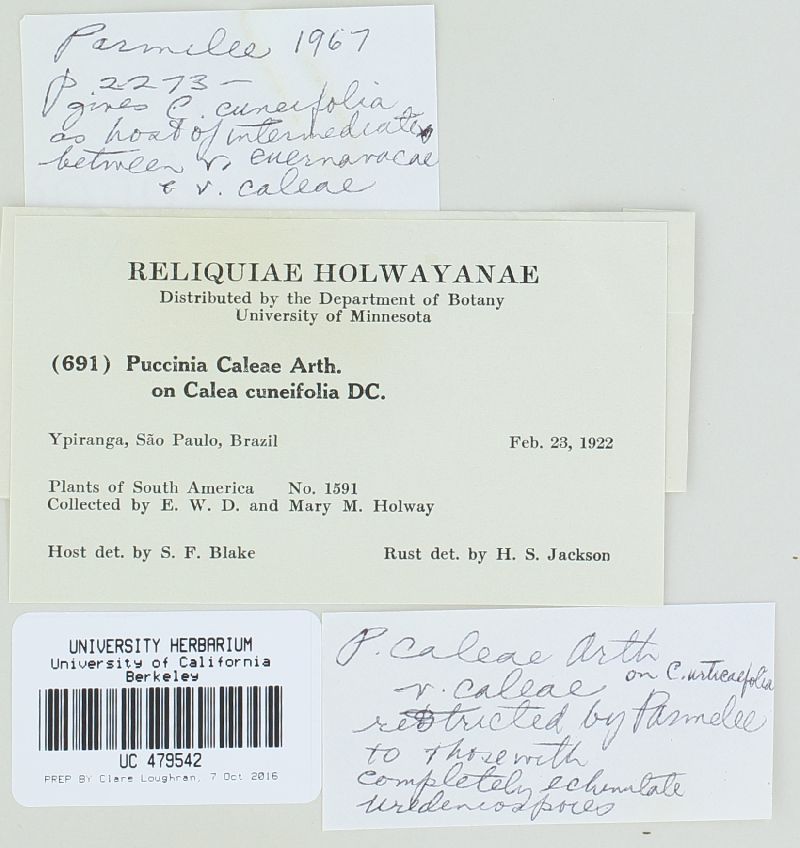 Parmelee 1967
p. 2273-
gives C. cuneifolia
as host of intermediates
between v. cuernavacae
& v. caleae
RELIQUIAE HOLWAYANAE
Distributed by the Department of Botany
University of Minnesota
(691) Puccinia Caleae Arth.
on Calea cuneifolia DC.
Ypiranga, São Paulo, Brazil Feb. 23, 1922
Plants of South America No. 1591
Collected by E. W. D. and Mary M. Holway
Host det. by S. F. Blake Rust det. by H. S. Jackson
UNIVERSITY HERBARIUM
University of California
Berkeley
UC 479542
PREP BY Clare Loughran, 7 Oct 2016
P. caleae Arth
v. caleae on C. urticaefolia
restricted by Parmelee
to those with
completely echinulate
urediniospores